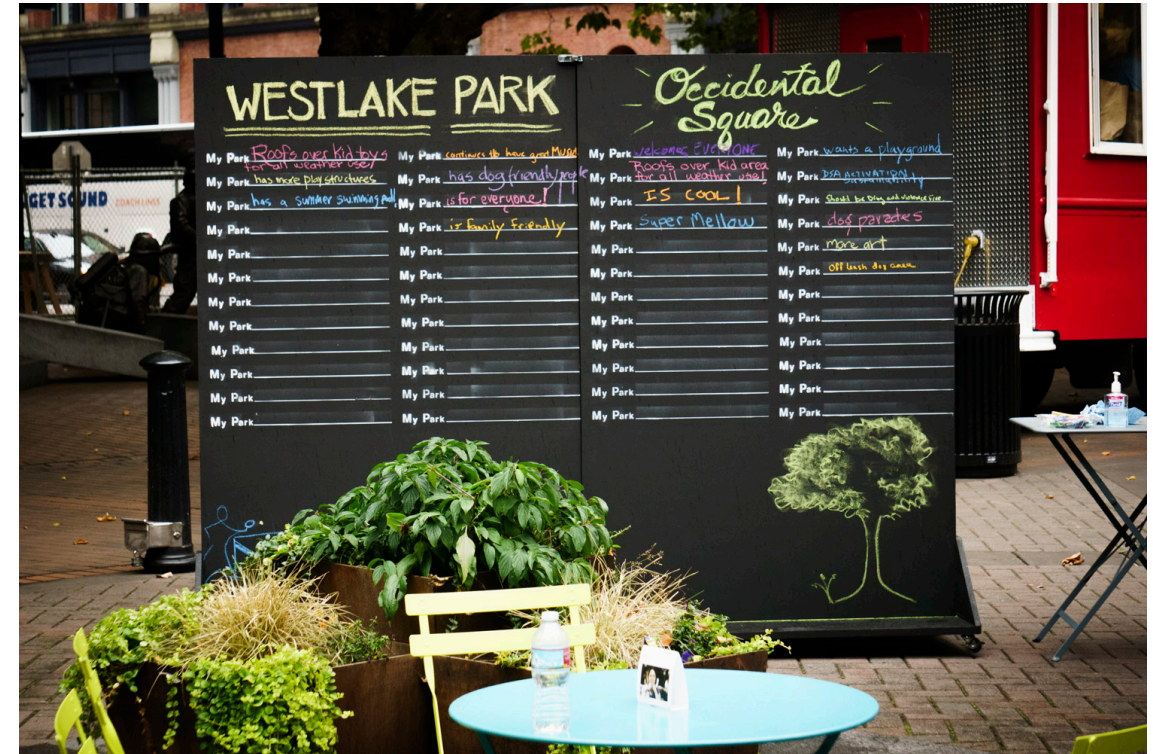 WESTLAKE PARK
My Park Roofs over kid toys
for all weather use!
My Park has more play structures
My Park has a summer swimming pool
My Park
My Park
My Park
My Park
My Park
My Park
My Park
My Park
My Park
My Park continues to have good
My Park has dog friendly people
My Park is for everyone!
My Park is family friendly
My Park
My Park
My Park
My Park
My Park
My Park
My Park
My Park
Occidental
Square
My Park welcomes EVERYONE
My Park Roofs over kid area
for all weather use!
My Park IS COOL!
My Park Super Mellow
My Park
My Park
My Park
My Park
My Park
My Park
My Park
My Park
My Park wants a playground
My Park DSA ACTIVATION
sustainability
My Park Should be drug and violence free
My Park dog parades
My Park more art
My Park Off leash dog area
My Park
My Park
My Park
My Park
My Park
My Park
GET SOUND COACHLINES